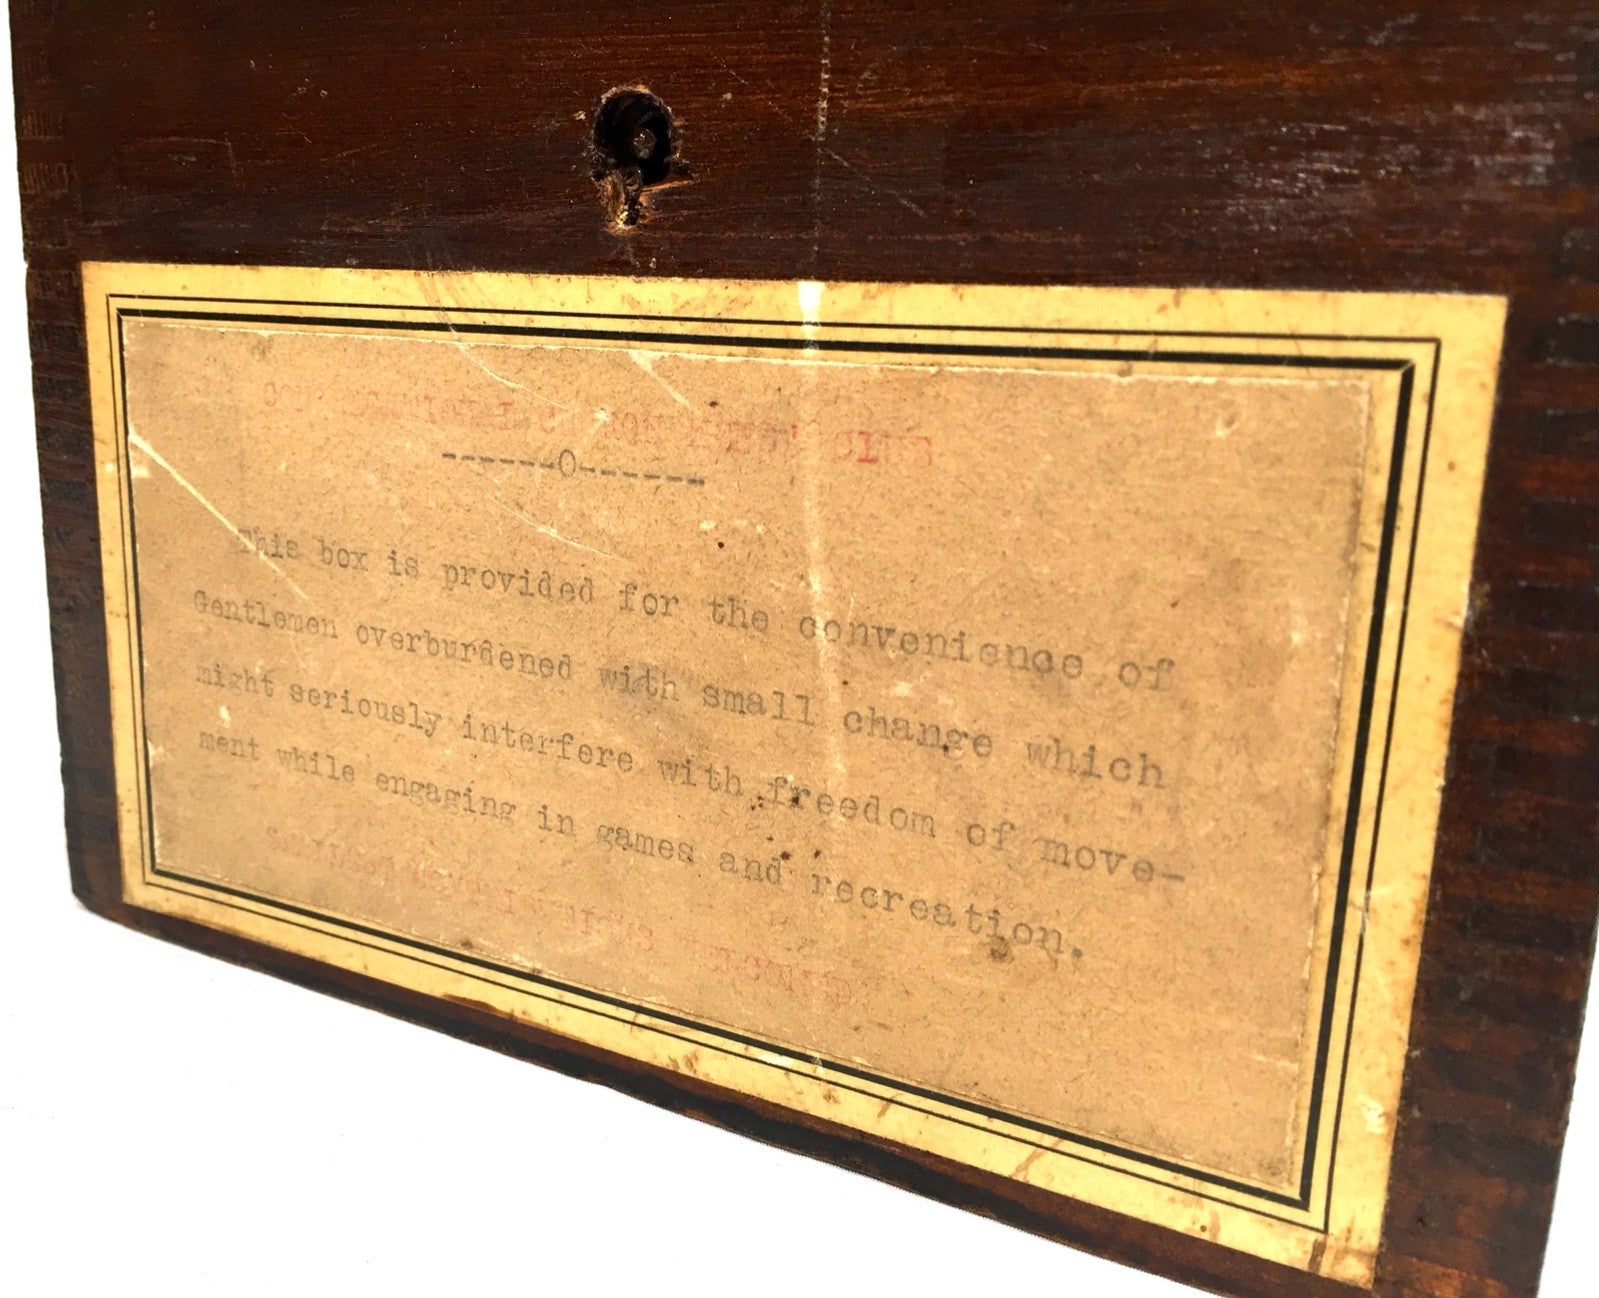 CLUB
------O------
This box is provided for the convenience of
Gentlemen overburdened with small change which
might seriously interfere with freedom of move-
ment while engaging in games and recreation.